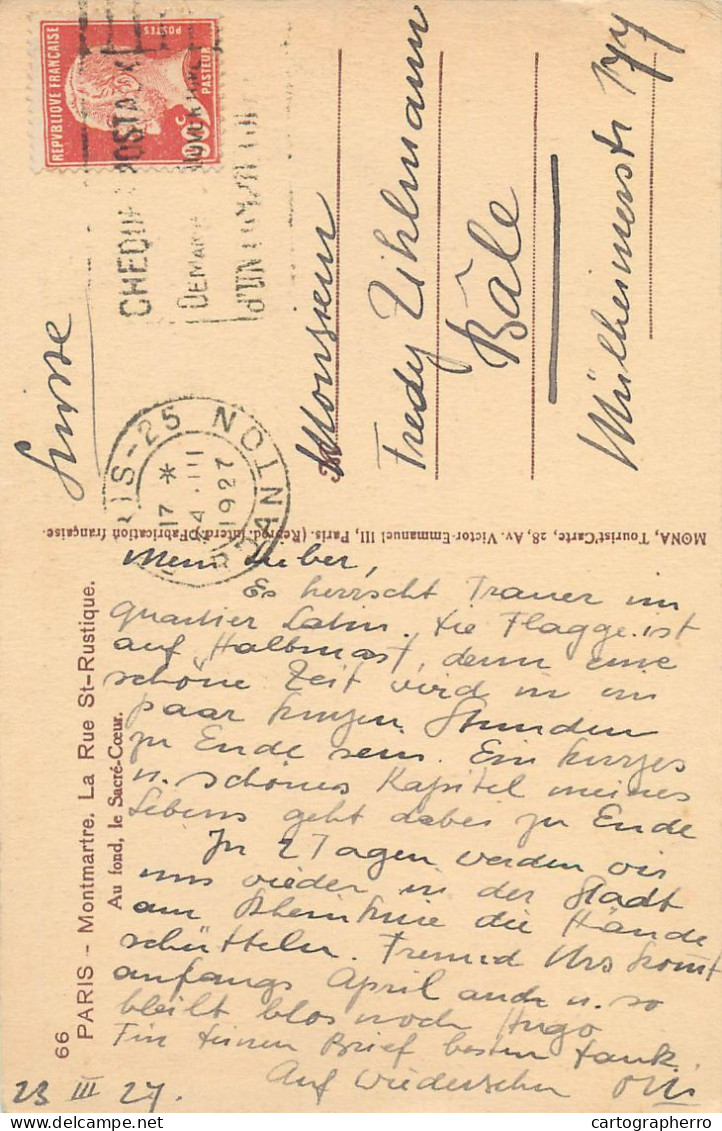 REPVBLIQUE FRANÇAISE
POSTES
PASTEUR
90c
CHEQUE POSTAUX
DEMANDEZ
D'UN
PARIS-25 DANTON
17 *
24 . III
1927
Suisse
Monsieur
Fredy Uhlmann
Bâle
Mülheimerstr 177
MONA, Tourist'Carte, 28, Av. Victor-Emmanuel III, Paris. (Reprod. Interd.) Fabrication française.
66
PARIS - Montmartre. La Rue St-Rustique.
Au fond, le Sacré-Cœur.
Mein Lieber,
Es herrscht Trauer im
quartier Latin. Die Flagge ist
auf Halbmast, denn eine
schöne Zeit wird in ein
paar kurzen Stunden
zu Ende sein. Ein kurzes
u. schönes Kapitel meines
Lebens geht dabei zu Ende
In 2 Tagen werden wir
uns wieder in der Stadt
am Rheinknie die Hände
schütteln. Freund Urs kommt
anfangs April auch u. so
bleibt blos noch Hugo
Für deinen Brief besten Dank.
Auf Wiedersehn
23 III 27.
cartographerro